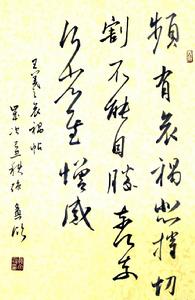 頻有哀禍悲摧切
割不能自勝奈何奈
何省慰增感
王羲之哀禍帖
歲次